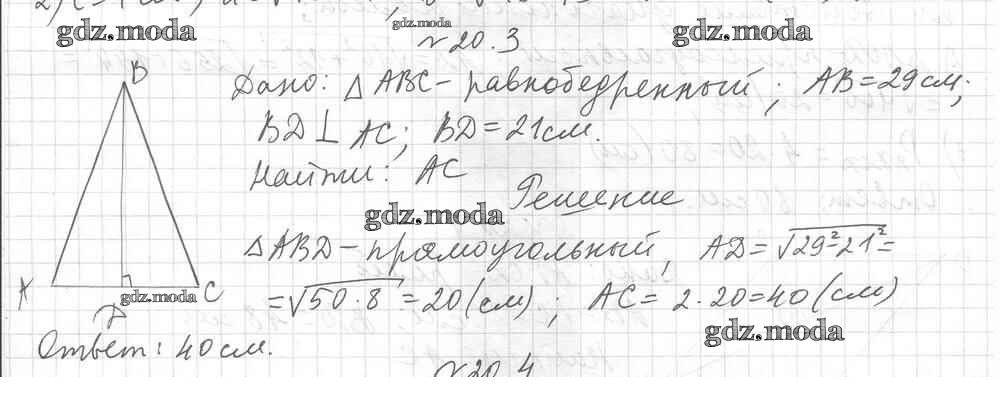 gdz.moda
gdz.moda
gdz.moda
№ 20.3
Дано: △ABC – равнобедренный; AB = 29 см;
BD ⊥ AC; BD = 21 см.
Найти: AC
Решение
gdz.moda
△ABD – прямоугольный, AD = √29²-21² =
= √50·8 = 20 (см); AC = 2·20 = 40 (см)
gdz.moda
gdz.moda
B
A
C
D
Ответ: 40 см.
№ 20.4